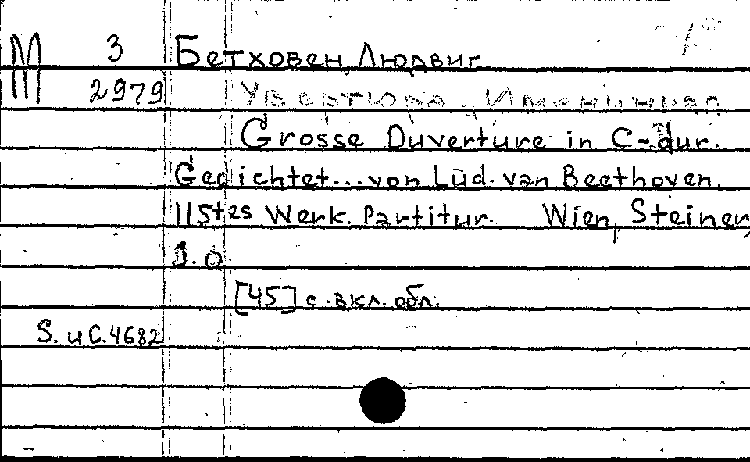 М 3 Бетховен, Людвиг
2979 Увертюра "Именинная"
Grosse Ouverture in C-dur.
Gedichtet... von Lud. van Beethoven.
115tes Werk. Partitur. Wien, Steiner,
s.a.
[45] с. вкл. обл.
S. u C. 4682